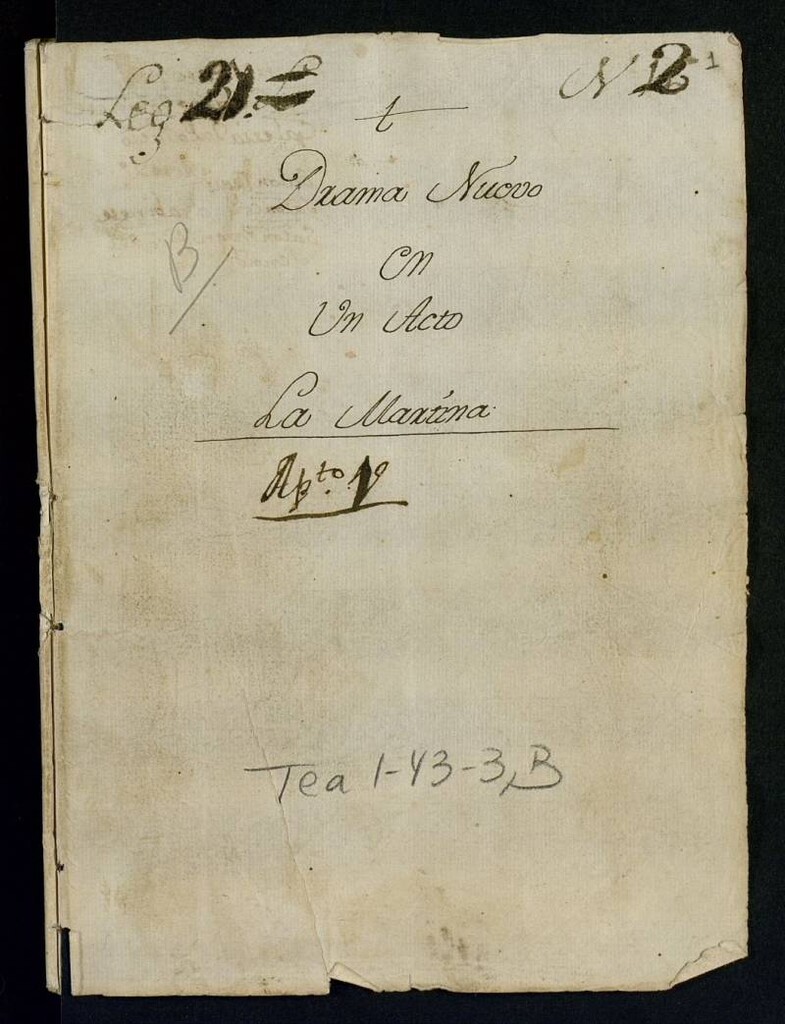 Leg 21. N 2 1
t
Drama Nuevo
en
Un Acto
La Martina
Apto. 1º
B
Tea 1-43-3, B